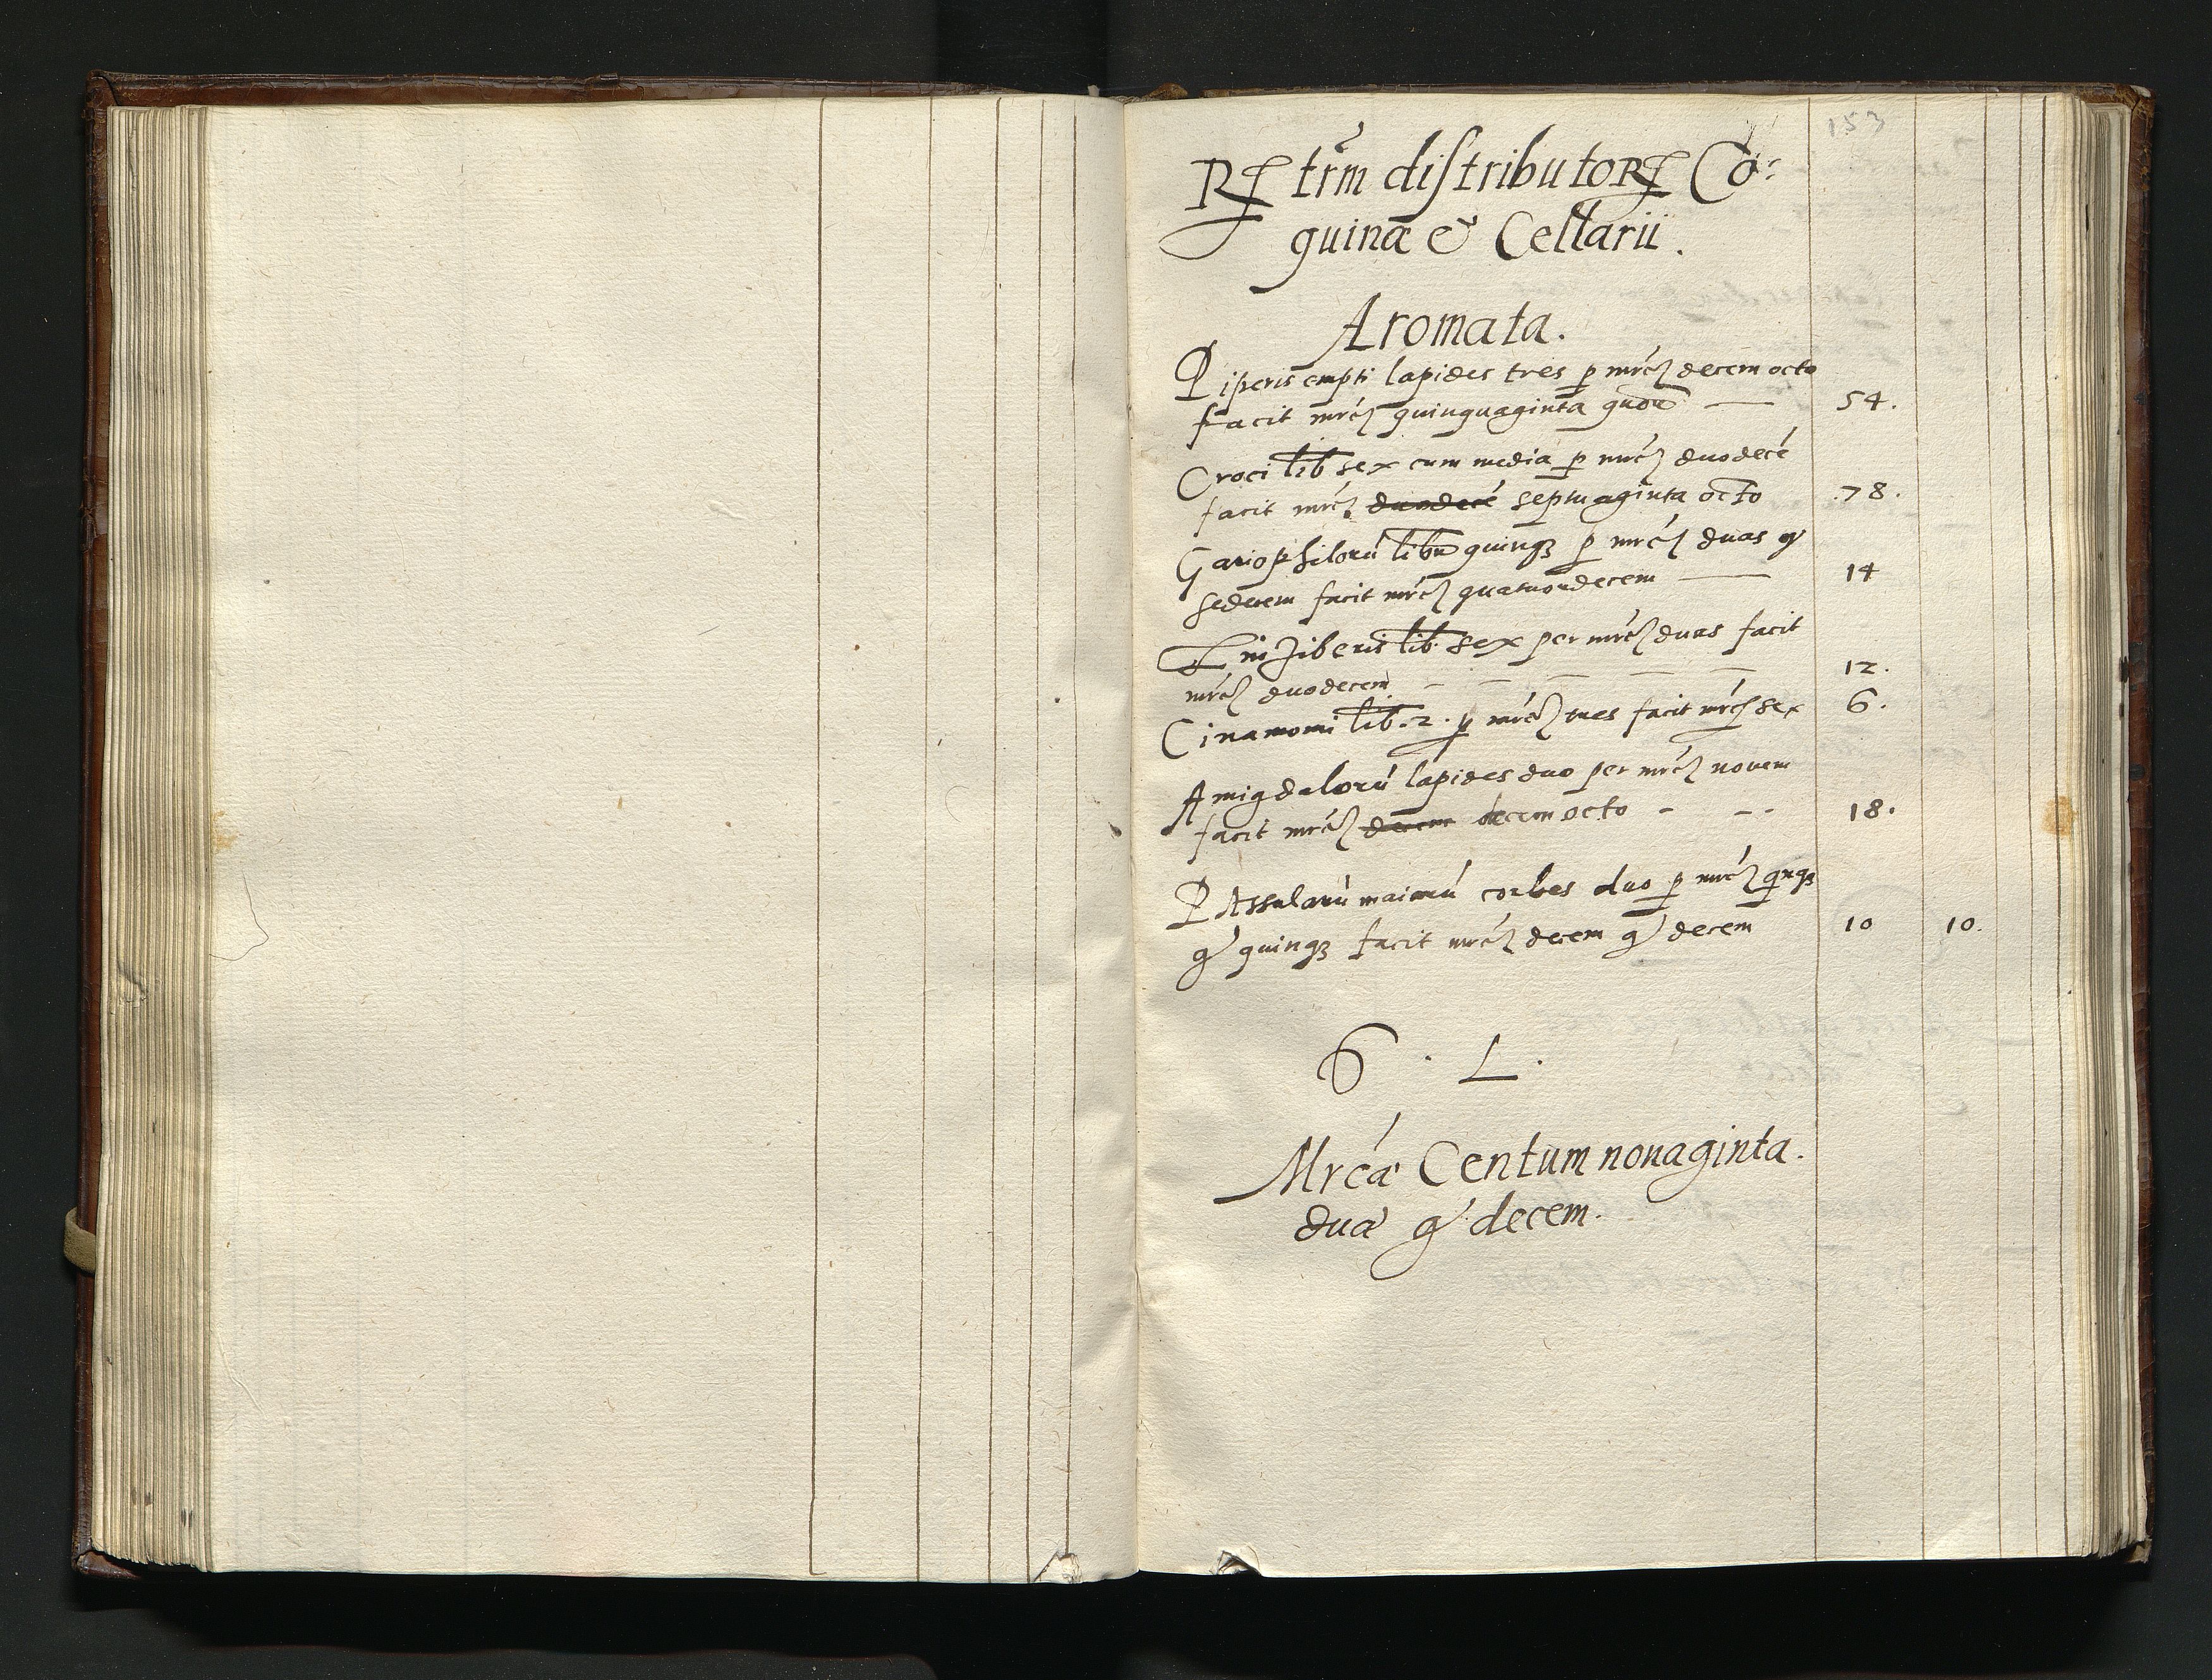 153
Rtrm distributor Co:
quinæ & Cellarii.
Aromata.
Piperis empti lapides tres p mrc decem octo
facit mrc quinquaginta quor — 54.
Croci lib sex cum media p mrc duodecé
facit mrc duodecé septuaginta octo .78.
Gariophiloru libr quinqz p mrc duas g
sedecem facit mrc quatuordecem — 14
Zinziberis lib. sex per mrc duas facit
mrc duodecem — — — — 12.
Cinamomi lib. 2. p mrc tres facit mrc sex 6.
Amigdaloru lapides duo per mrc novem
facit mrc decem decem octo - - - 18.
PAssularu maioru corbes duo p mrc qnqz
g quinqz facit mrc decem g decem 10 10.
L.
Mrcæ Centum nonaginta.
duæ g decem.